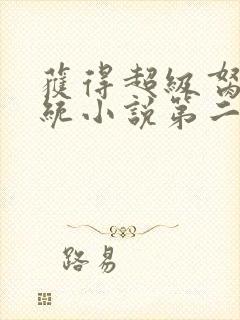 獲得超級
統小說第二
路易